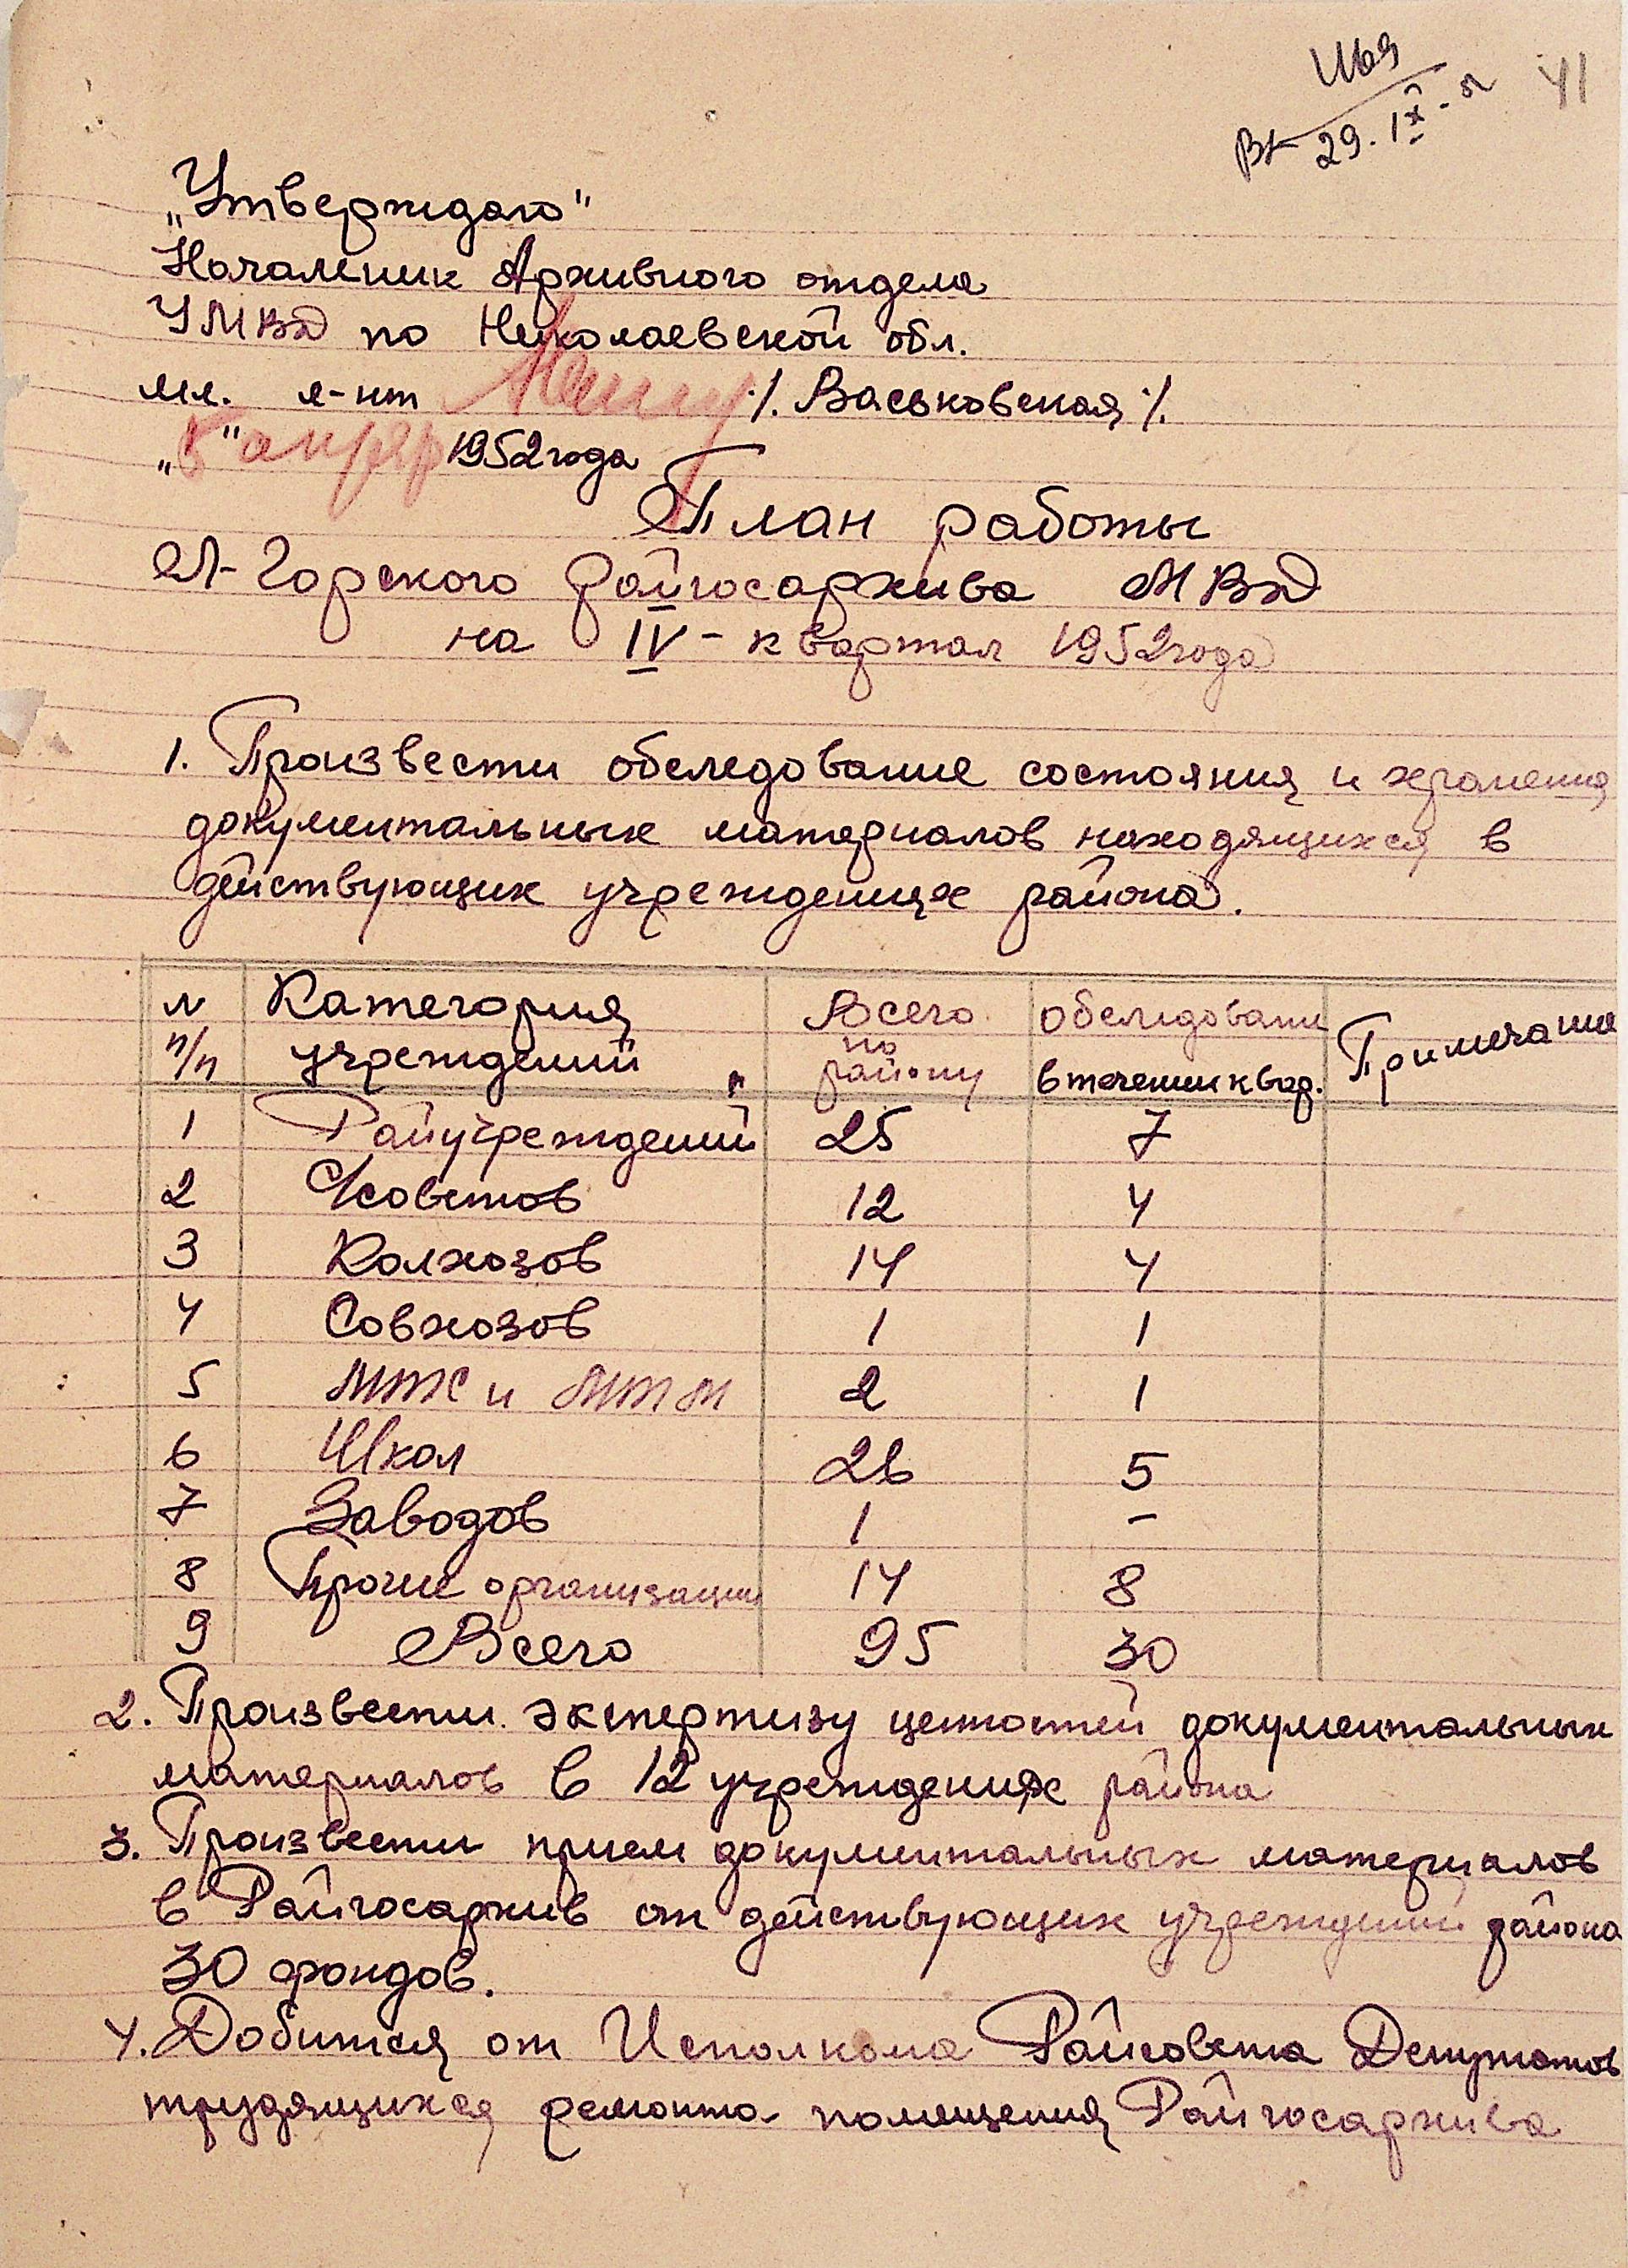 41
Вх 29. IX - 52
„Утверждаю"
Начальник Архивного отдела
УМВД по Николаевской обл.
мл. л-нт ·/. Васьковская ·/.
„5" 1952 года
План работы
Л-Горского райгосархива МВД
на IV - квартал 1952 года
1. Произвести обследование состояния и хранения
документальных материалов находящихся в
действующих учреждениях района.
N п/п Категория учреждений Всего по району Обследовани в течении квар. Примечание
1 Райучреждений 25 7
2 С/советов 12 4
3 Колхозов 14 4
4 Совхозов 1 1
5 МТС и МТМ 2 1
6 Школ 26 5
7 Заводов 1 -
8 Прочие организации 14 8
9 Всего 95 30
2. Произвести экспертизу ценностей документальных
материалов в 12 учреждениях района
3. Произвести прием документальных материалов
в Райгосархив от действующих учреждений района
30 фондов.
4. Добится от Исполкома Райсовета Депутатов
трудящихся ремонта помещения Райгосархива